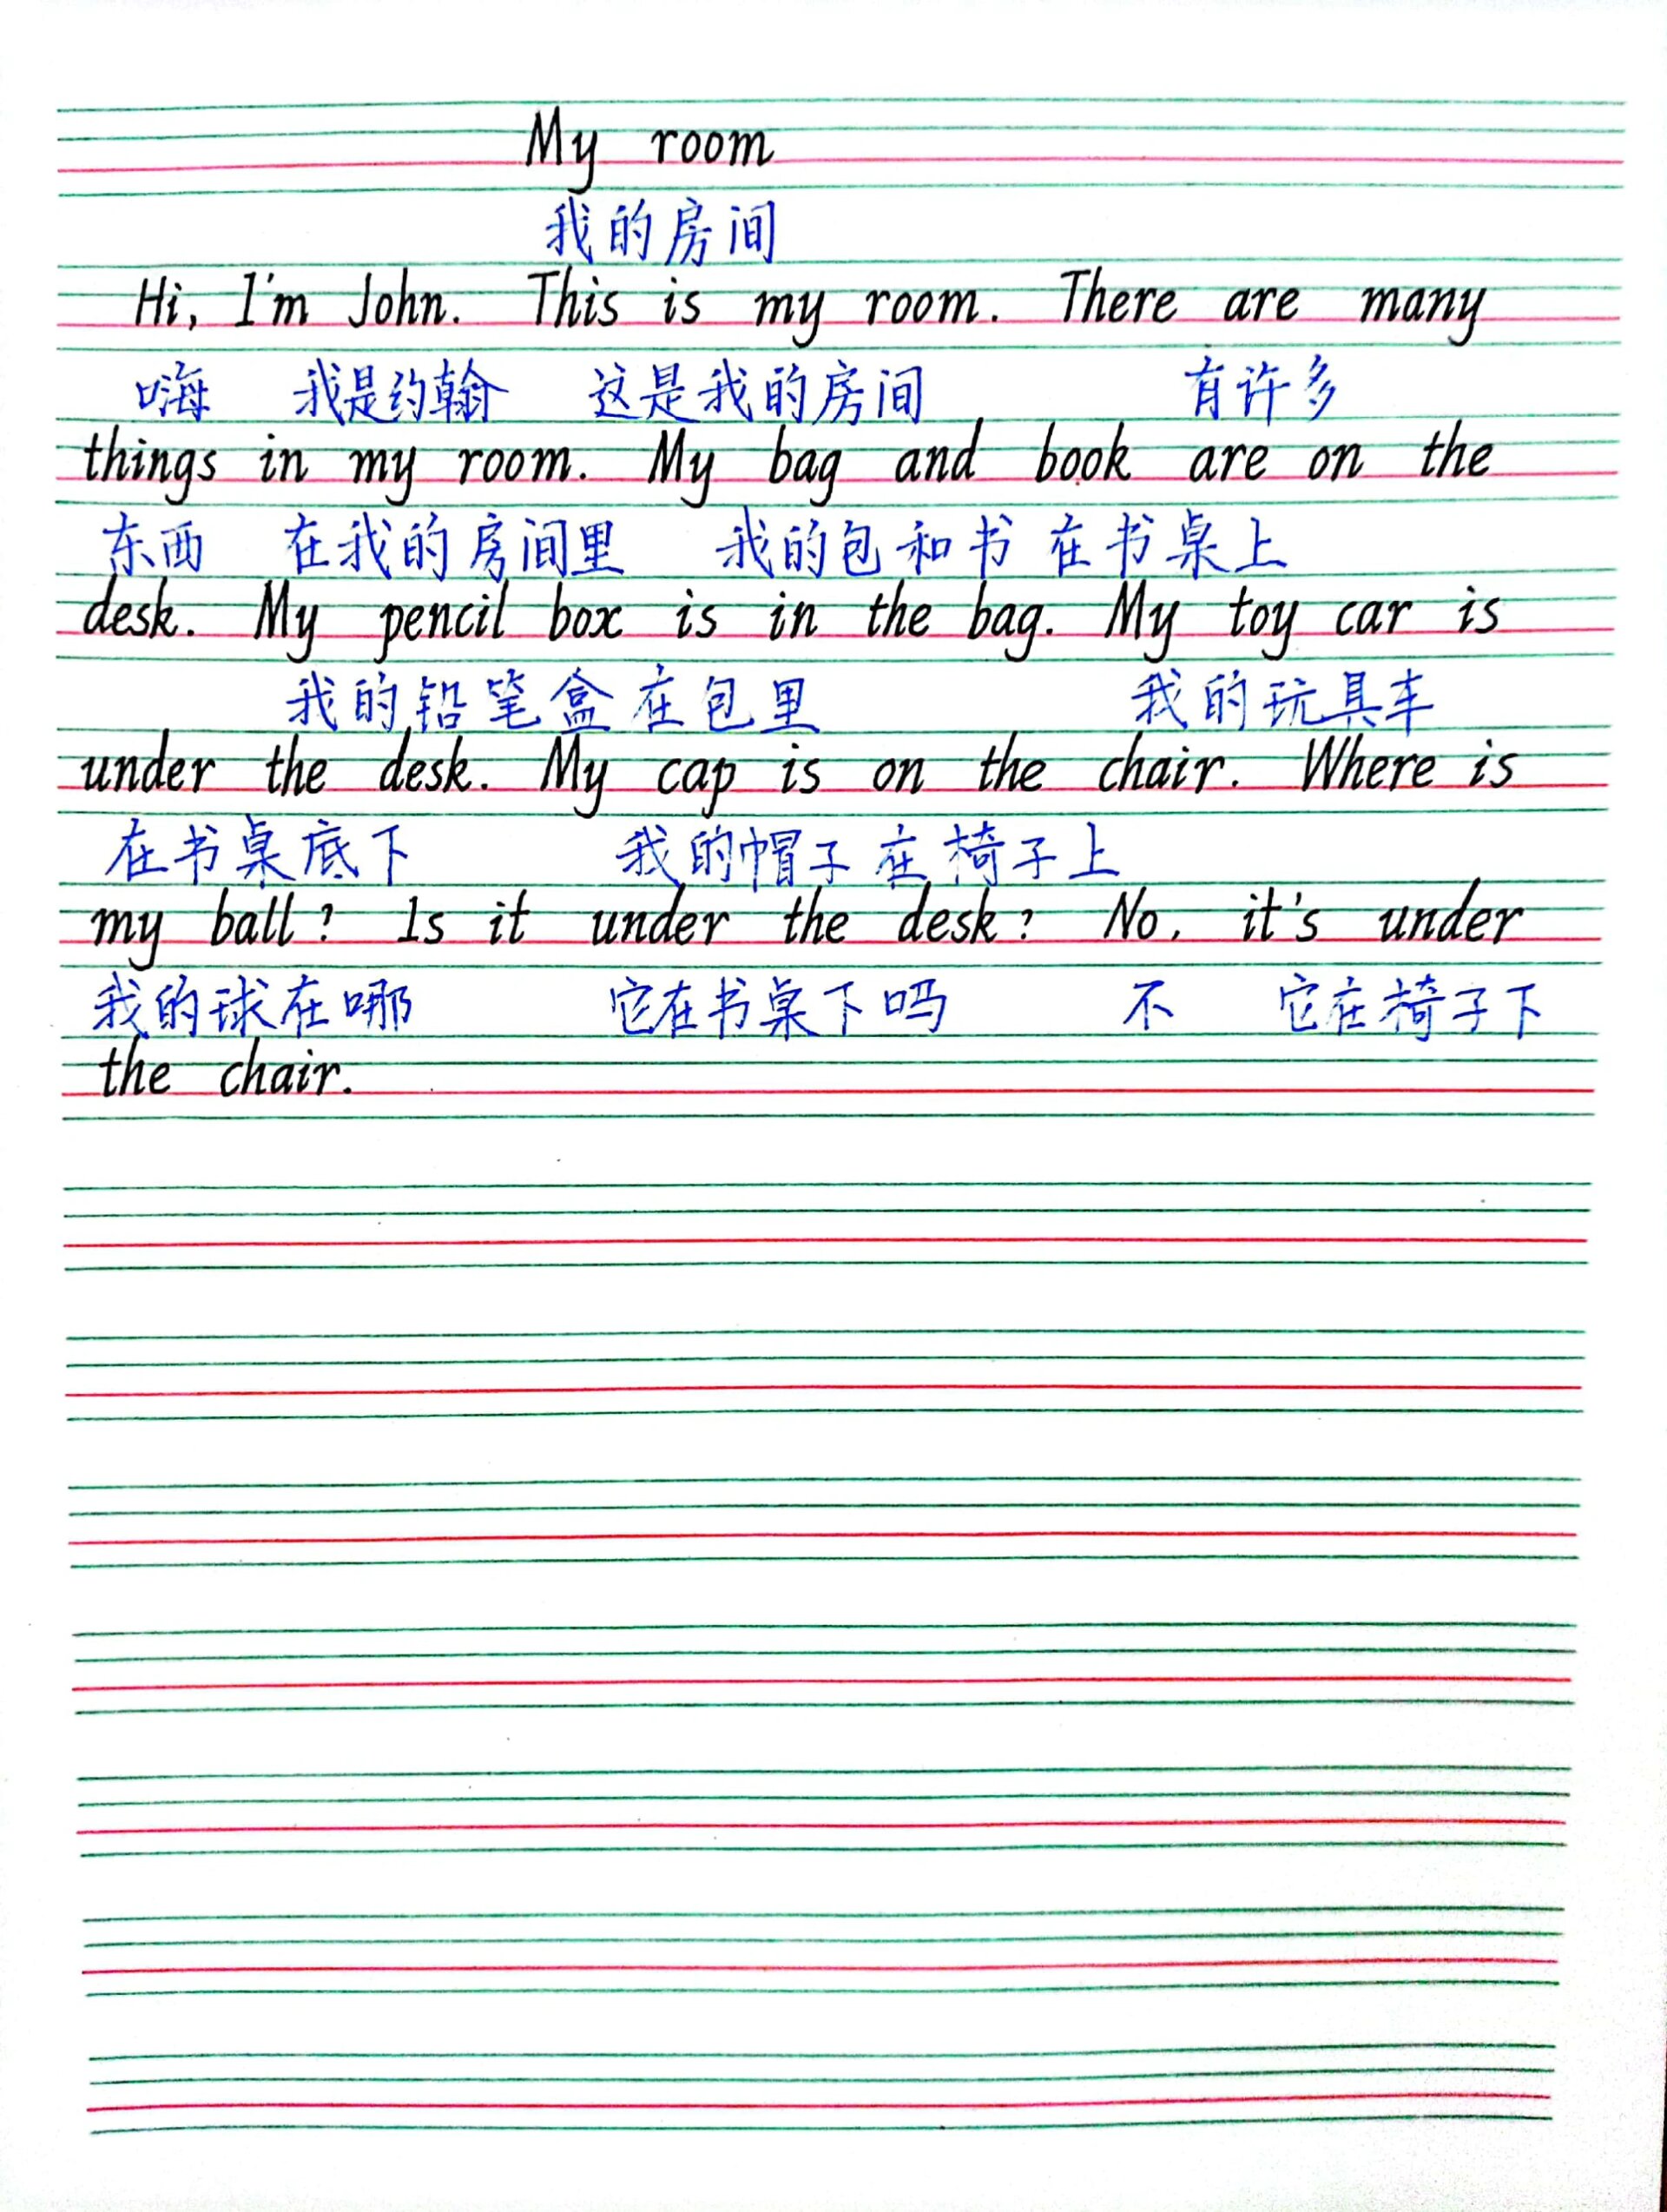 My room
我的房间
Hi, I'm John. This is my room. There are many
嗨 我是约翰 这是我的房间 有许多
things in my room. My bag and book are on the
东西 在我的房间里 我的包和书 在书桌上
desk. My pencil box is in the bag. My toy car is
我的铅笔盒在包里 我的玩具车
under the desk. My cap is on the chair. Where is
在书桌底下 我的帽子在椅子上
my ball? Is it under the desk? No, it's under
我的球在哪 它在书桌下吗 不 它在椅子下
the chair.